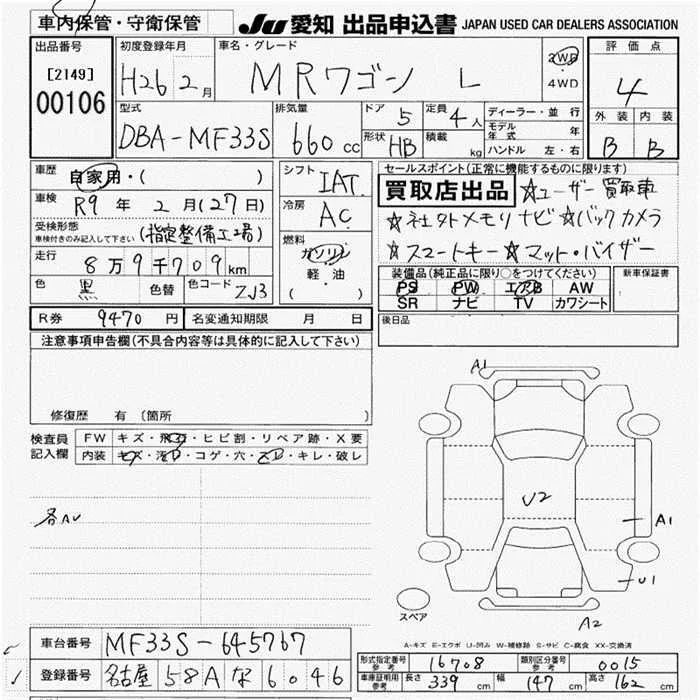 車内保管・守衛保管 JU 愛知 出品申込書 JAPAN USED CAR DEALERS ASSOCIATION
出品番号 初度登録年月 車名・グレード 評価点
[2149] H26 2月 MRワゴン L 2WD ・ 4WD 4
00106
型式 排気量 ドア 5 定員 4人 ディーラー・並行 外装 内装
DBA-MF33S 660cc 形状 HB 積載 kg モデル年式 年 B B
ハンドル 左・右
車歴 自家用・( ) シフト IAT セールスポイント(正常に機能するものに限ります)
車検 R9年 2月(27日) 冷房 AC 買取店出品 ☆ユーザー買取車
受検形態 車検付きのみ記入して下さい (指定整備工場) ☆社外メモリナビ☆バックカメラ
走行 8万9千709km 燃料 ガソリン ☆スマートキー☆マット・バイザー
軽油 ( ) 装備品(純正品に限り○をつけてください) 新車保証書
色 黒 色替 色コード ZJ3 PS PW エアB AW
SR ナビ TV カワシート
R券 9470円 名変通知期限 月 日 後日品
注意事項申告欄(不具合内容等は具体的に記入して下さい)
修復歴 有 (箇所 )
検査員記入欄 FW キズ・飛石・ヒビ割・リペア跡・X要
内装 キズ・汚れ・コゲ・穴・スレ・キレ・破レ
A1
U2
各AU A1
U1
スペア A2
A-キズ E-エクボ U-凹み W-補修跡 S-サビ C-腐食 XX-交換済
車台番号 MF33S-645767
登録番号 名古屋 58A な 6046
形式指定番号 参考 16708 類別区分番号 参考 0015
車庫証明用 参考 長さ 339cm 幅 147cm 高さ 162cm